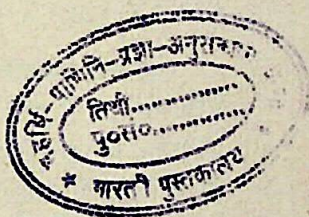 पाणिनि-प्रज्ञा-अनुसन्धान
तिथी..............
पु०सं०..............
* भारती पुस्तकालय *